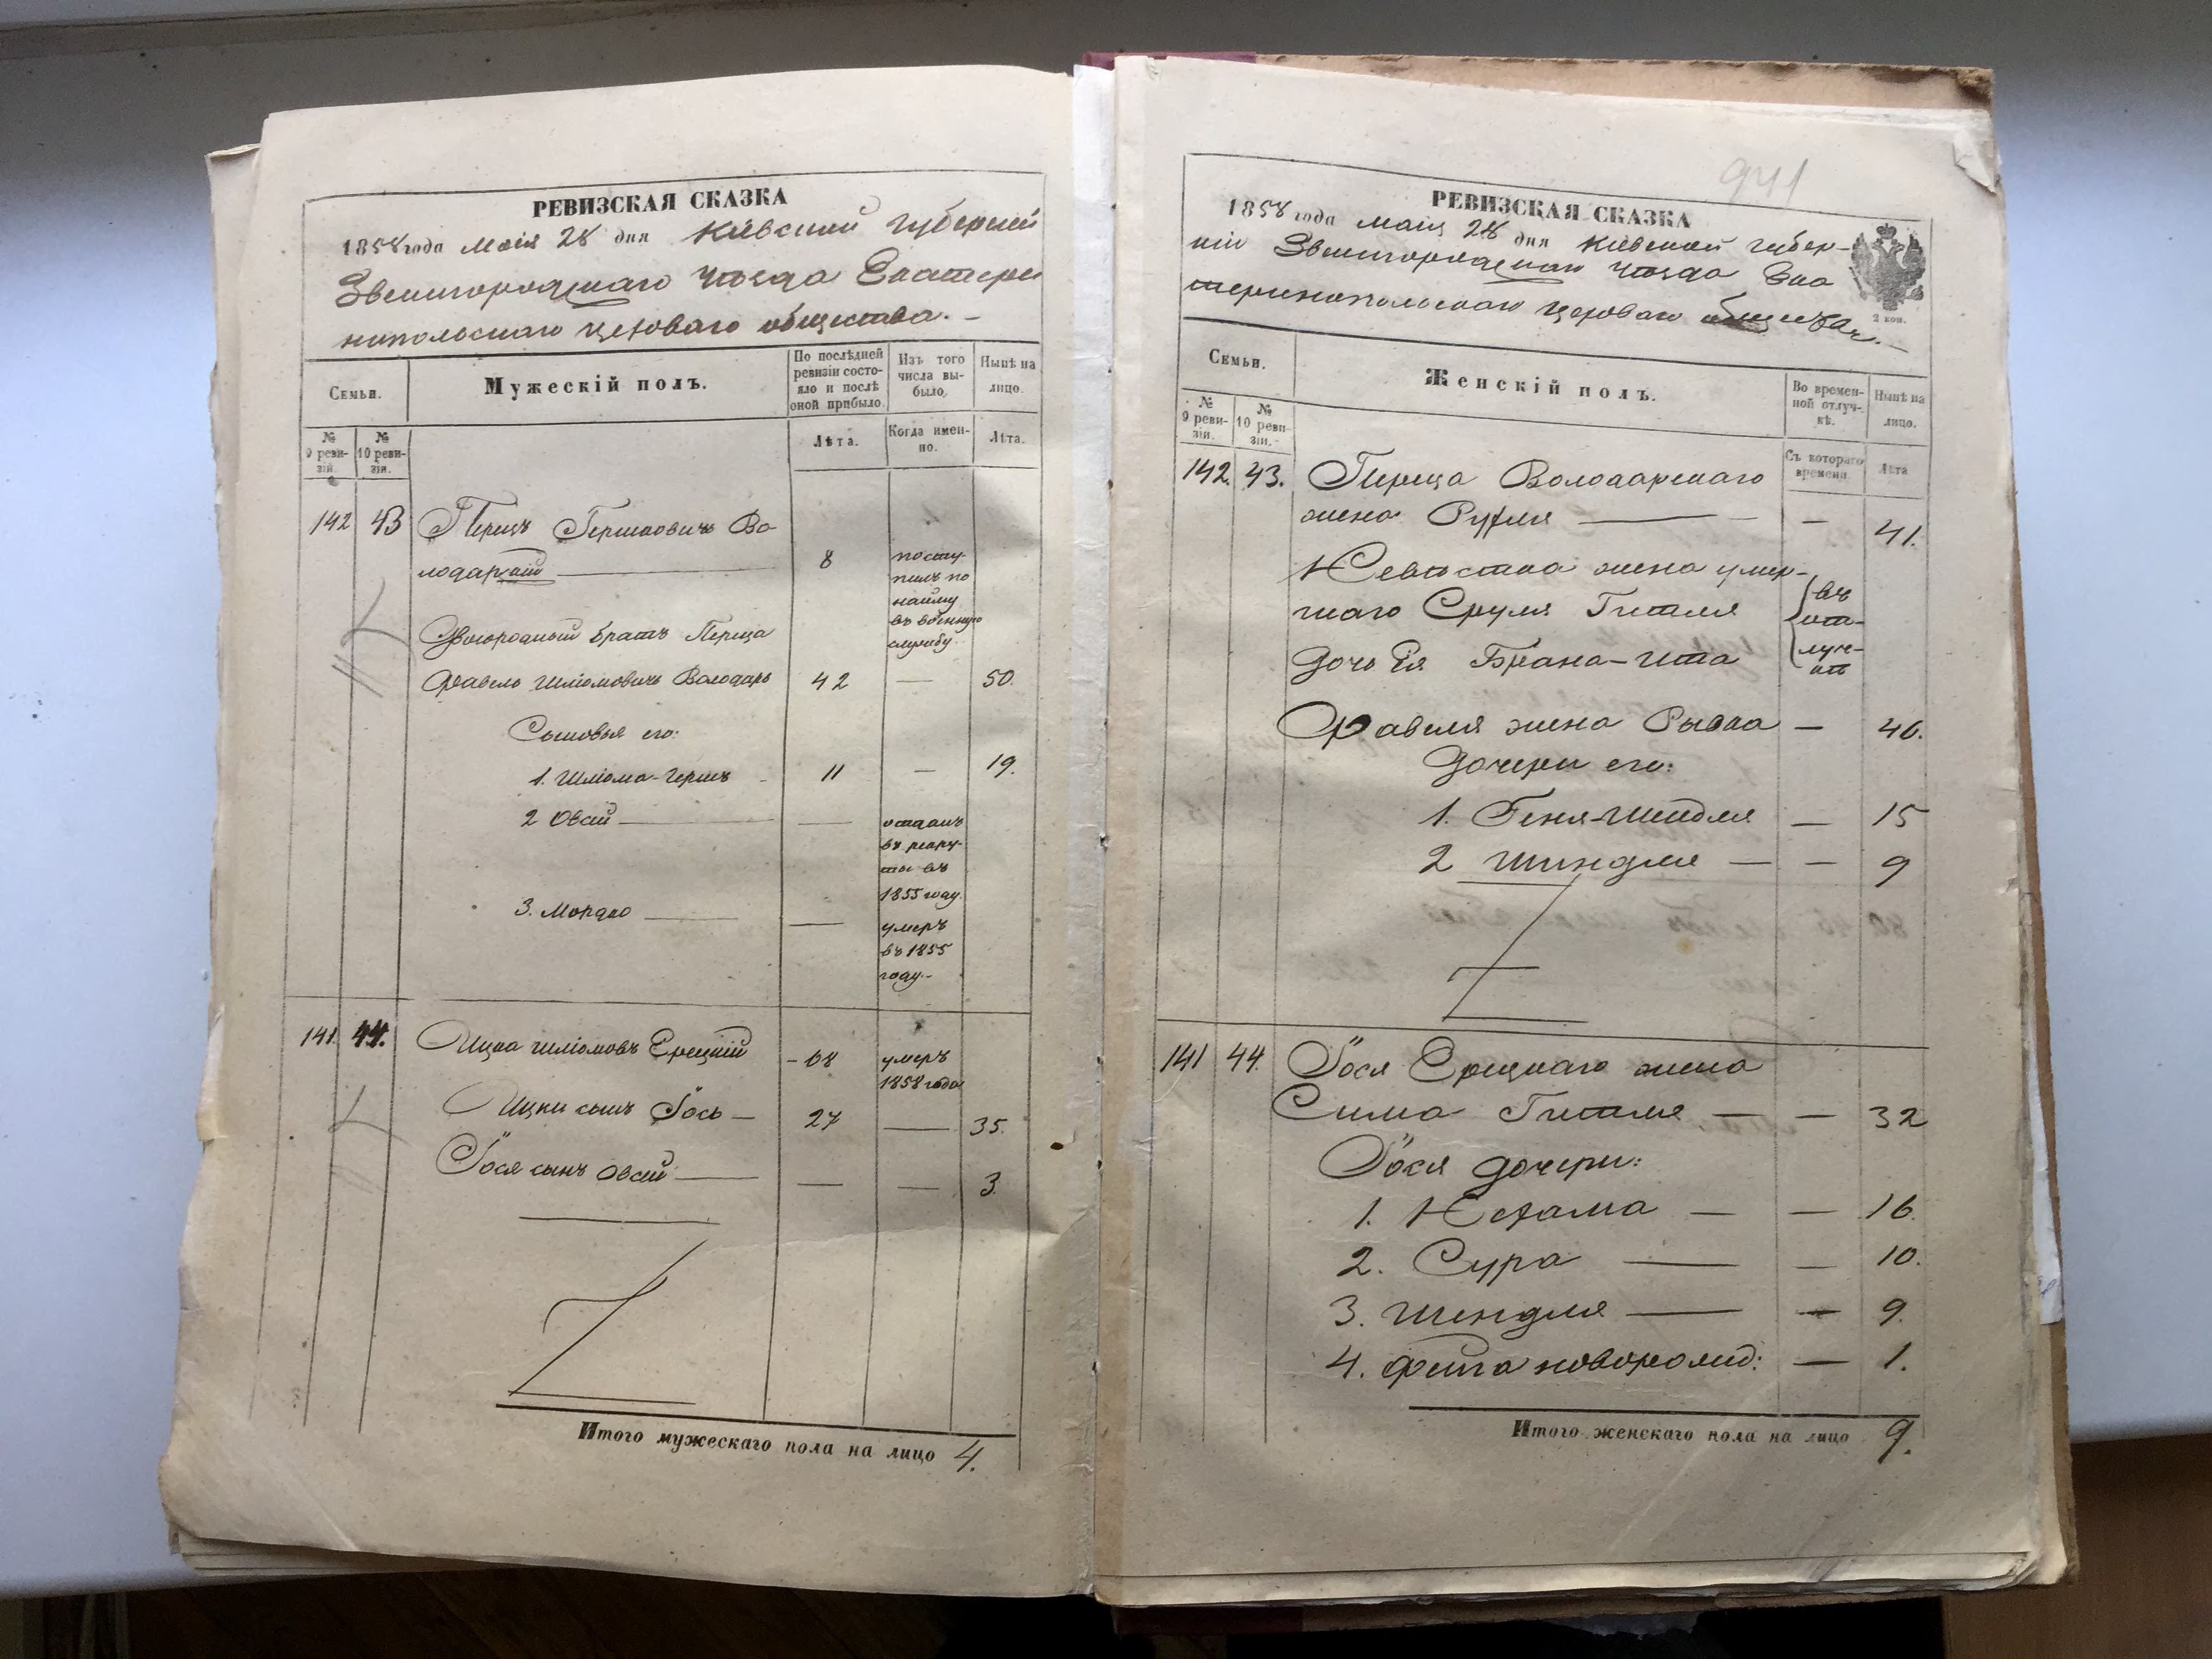 РЕВИЗСКАЯ СКАЗКА
1858 года мая 28 дня Кіевской губерніи
Звенигородскаго уѣзда Екатери
нопольскаго цеховаго общества.
Семьи.
Мужескій полъ.
По послѣдней
ревизіи состо-
яло и послѣ
оной прибыло.
Изъ того
числа вы-
было.
Нынѣ на
лицо.
№
9 реви-
зіи.
№
10 реви-
зіи.
Лѣта.
Когда имен-
но.
Лѣта.
142 43 Перецъ Гершковичъ Во-
лодарскій — 8
посту-
пилъ по
найму
въ военную
службу.
Двоюродный братъ Переца
Фавель Шліомовичъ Володарс 42 — 50.
Сыновья его:
1. Шліома-Гершъ - 11 — 19.
2 Овсій — —
отданъ
въ рекру-
ты въ
1855 году.
3. Мордко — —
умеръ
въ 1855
году.-
141. 44. Ицка Шліомовъ Ерецкій - 68
умеръ
1858 года
Ицки сынъ Іось — 27 — 35.
Іося сынъ Овсій — — — 3.
Итого мужескаго пола на лицо 4.
941
РЕВИЗСКАЯ СКАЗКА
1858 года мая 28 дня Кіевской губер-
ніи Звенигородскаго уѣзда Ека
теринопольскаго цеховаго общества.-
2 коп.
Семьи.
Женскій полъ.
Во времен-
ной отлуч-
кѣ.
Нынѣ на
лицо.
№
9 реви-
зіи.
№
10 реви-
зіи.
Съ котораго
времени.
Лѣта
142. 43. Переца Володарскаго
жена Рухля — — 41.
Невѣстка жена умер-
шаго Сруля Гитля
дочь Ея Брана-Ита
въ
отлуч-
кѣ
Фавеля жена Рывка — 46.
Дочери его:
1. Геня-Шейдля — 15
2 Шиндля — — 9
141 44. Іося Ерецкаго жена
Сима Гитля — — 32
Іося дочери:
1. Нехама — — 16.
2. Сура — — 10.
3. Шендля — — 9.
4. Фейга новорожд: — 1.
Итого женскаго пола на лицо 9.